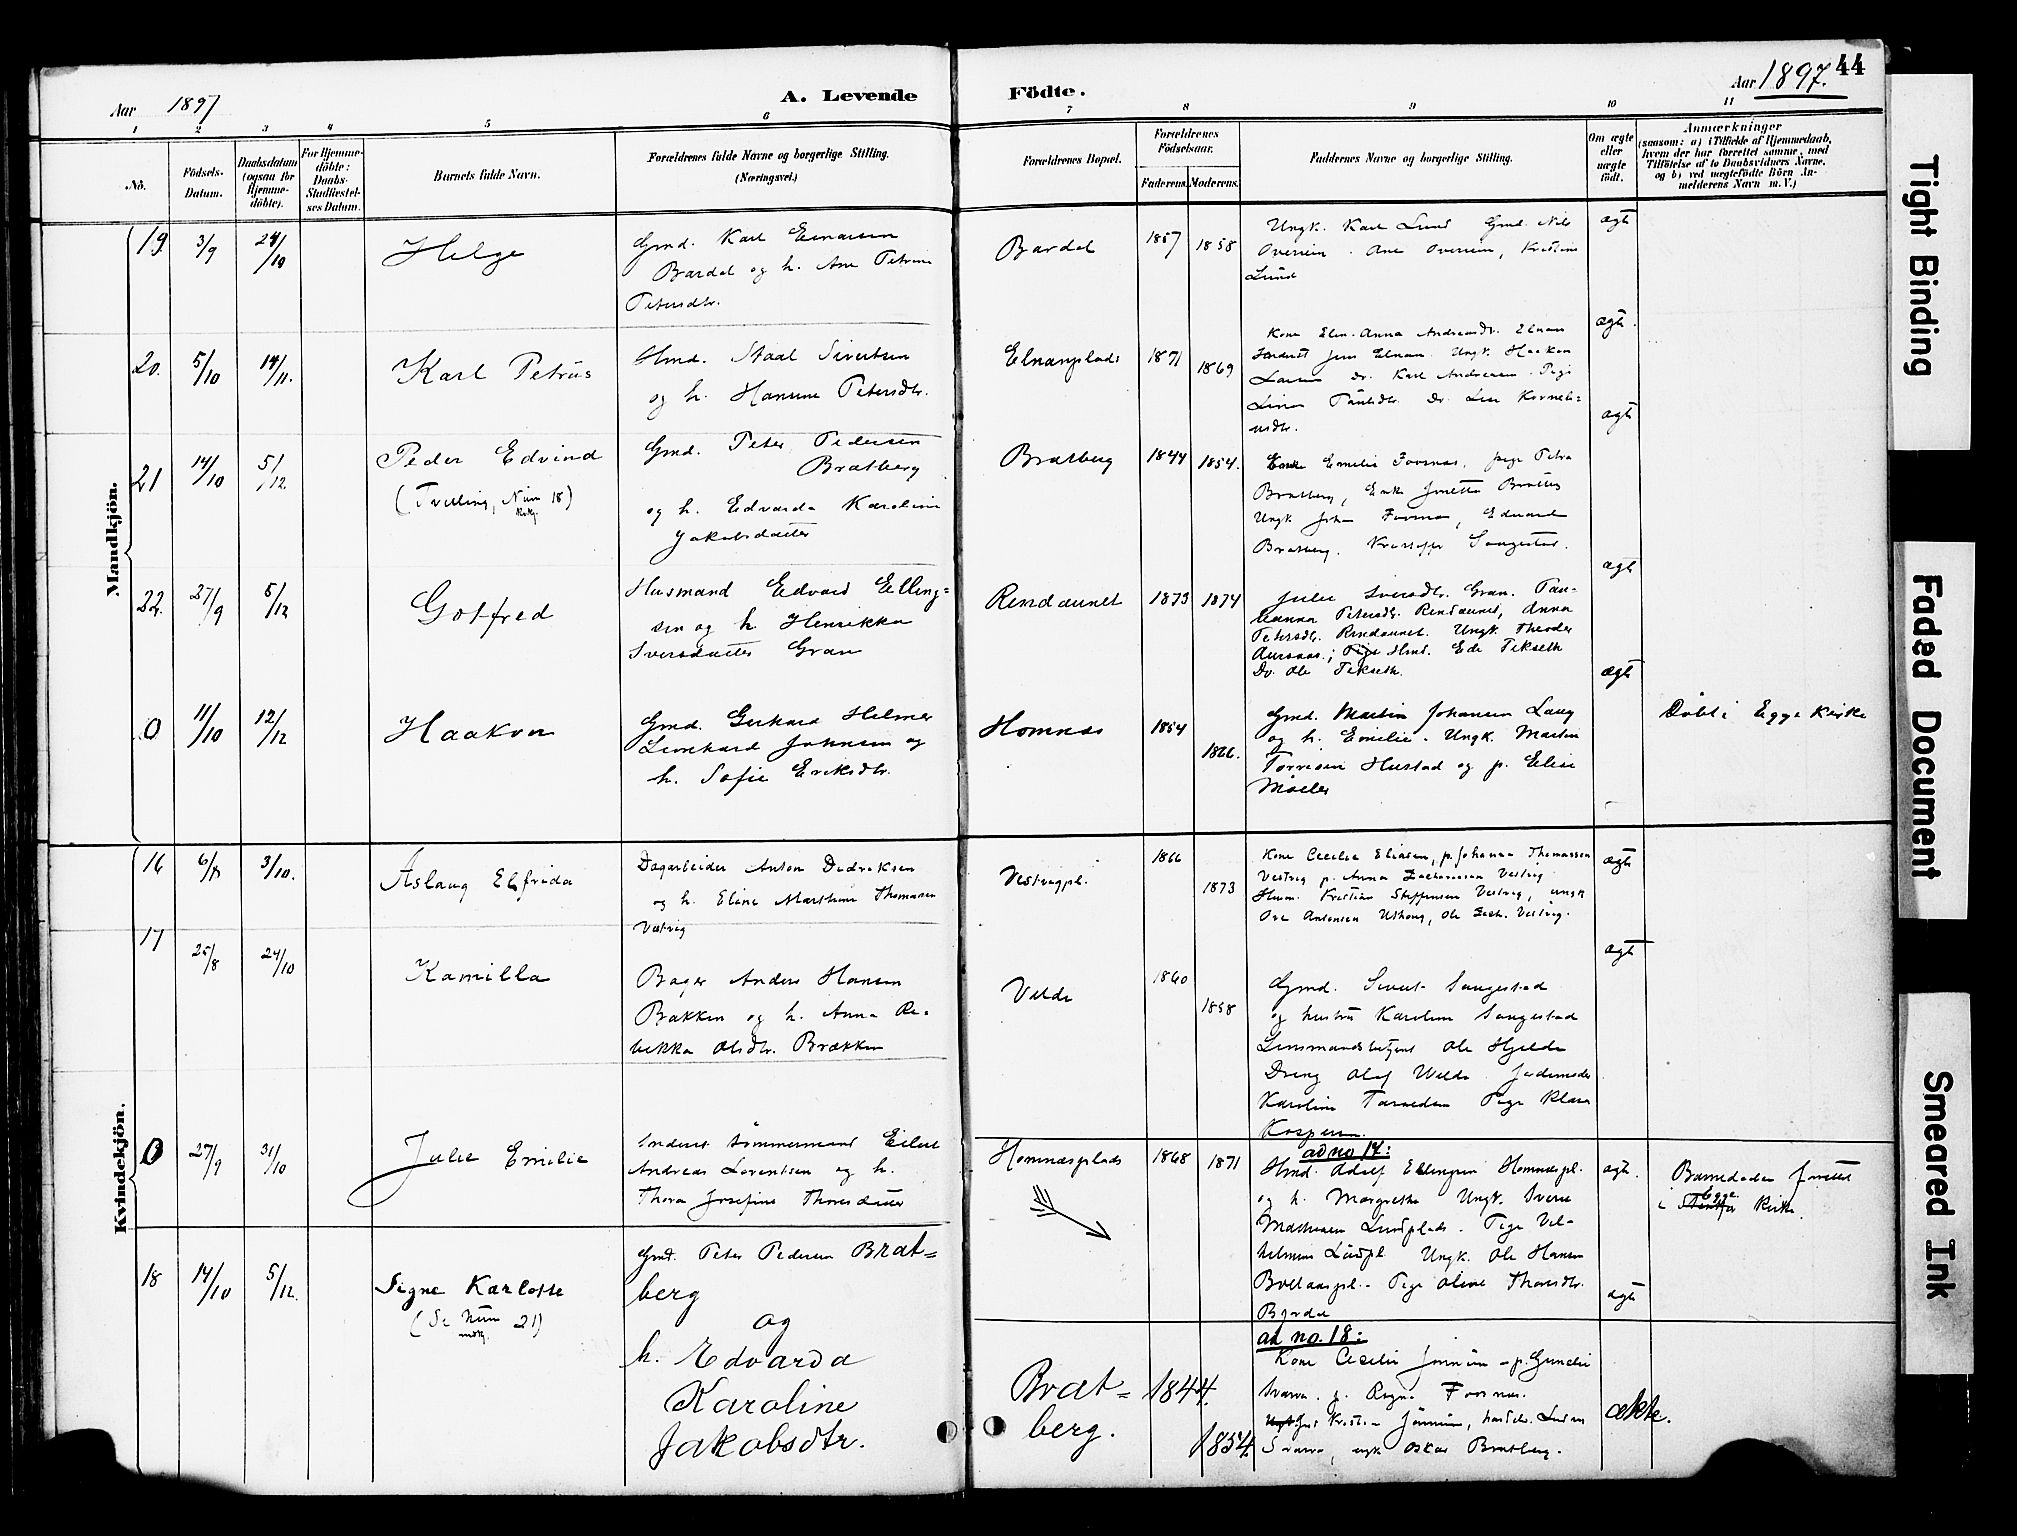 44
Aar 1897
A. Levende Födte.
Aar 1897.
1 2 3 4 5 6 7 8 9 10 11
No.
Födsels-
Datum.
Daabsdatum
(ogsaa for
Hjemme-
döbte).
For Hjemme-
döbte:
Daabs-
Stadfæstel-
ses Datum.
Barnets fulde Navn.
Forældrenes fulde Navne og borgerlige Stilling.
(Næringsvei.)
Forældrenes Bopæl.
Forældrenes
Födselsaar.
Faderens. Moderens.
Faddernes Navne og borgerlige Stilling.
Om ægte
eller
uægte
födt.
Anmærkninger
(saasom: a) i Tilfælde af Hjemmedaab,
hvem der har forrettet samme, med
Tilföielse af to Daabsvidners Navne,
og b) ved uægtefödte Börn An-
melderens Navn m. V.)
Mandkjön.
19 3/9 24/10
Helge
Gmd. Karl Einarsen
Bardal og h. Ane Petrine
Petersdtr.
Bardal
1857 1858
Ungk. Karl Lund Gmd. Nils
Overrein. Ane Overrein, Kristine
Lund
ægt
20. 5/10 14/11.
Karl Petrus
Hmd. Staal Sivertsen
og h. Hanine Petersdtr.
Elnanplads
1871 1869
Kone Elen Anna Andreasdtr. Elnan
Inderst Jens Elnan. Ungk. Haakon
Larsen Dr. Karl Andreasen. Pige
Lina Paulsdtr. Dr. Lise Korneli-
usdtr.
ægt.
21 14/10 5/12
Peder Edvind
(Tvilling, Num 18)
kvkj.
Gmd. Peter Pedersen
Bratberg
og h. Edvarda Karoline
Jakobsdatter
Bratberg
1844 1854.
Emelie Foosnæs, pige Petra
Bratberg, Enke Jonetta Bratberg
Ungk Johan Foosnæs, Edvard
Bratberg. Kristoffer Saugestad.
ægt
22. 27/9 5/12
Gotfred
Husmand Edvard Elling-
sen og h. Henrikka
Sversdatter Gran
Rendaunet
1873 1874
Julie Sversdtr. Gran. Pau-
Hanna Petersdtr. Rendaunet, Anna
Petersdtr. Rendaunet. Ungk. Theodor
Aursaas; Hmd. Ede Tekseth
Dr. Ole Tekseth.
ægt
0 11/10 12/12
Haakon
Gmd. Gerhard Helmer
Leonhard Johnsen og
h. Sofie Eriksdtr.
Homnæs
1854 1866.
Gmd. Martin Johansen Lang
og h. Emelie. Ungk. Martin
Torresen Hustad og p. Elise
Møller
ægt
Døbt i Egge Kirke
Kvindekjön.
16 6/8 3/10.
Aslaug Elfrida
Dagarbeider Anton Dedriksen
og h. Eline Marthine Thomasen
Vestvig
Vestvigpl.
1866 1873
Kone Cecilie Eliasen, p. Johanna Thomassen
Vestvig p. Anna Zachariasen Vestvig
Husm. Kristian Steffensen Vestvig, ungk
Ove Antonsen Utheug, Ole Zach. Vestvig.
ægt
17 25/8 24/10
Kamilla
Bager Anders Hansen
Brækken og h. Anna Re-
bekka Olsdtr. Brækken
Velde
1860 1858
Gmd. Sivert Saugestad
og hustru Karoline Saugestad
Lensmandsbetjent Ole Hjelde
Dreng Olaf Welde. Jordemoder
Karoline Tørnedem Pige Klara
Kaspersen.
ægt
0 27/9 31/10
Julie Emilie
Inderst tømmermand Eilert
Andreas Lorentsen og h.
Thora Josefine Thoresdatter
Homnæsplads
1868 1871
ad no 17:
Hmd. Adolf Ellingsen Homnæspl.
og h. Margrethe Ungk. Sverre
Mathiasen Lundplads. Pige Vil-
helmine Lundpl Ungk. Ole Hansen
Bollaaspl. Pige Oline Thoresdtr.
Bjerdal
ægt.
Barnedaaben forrettet
i Egge Kirke.
18 14/10 5/12.
Signe Karlotte
(Se Num 21)
mdkj.
Gmd. Peter Pedersen Brat-
berg
og
h. Edvarda
Karoline
Jakobsdtr.
Brat-
berg.
1844. 1854.
ad no. 18:
Kone Cecilie Jønnum - p. Gunelie
Svarva. p. Ragna Foosnæs.
Gmd Kristian Jønnum, handelsb. Ludvig
Svarva, ungk Oskar Bratberg.
ægt
ækte.
Tight Binding
Faded Document
Smeared Ink